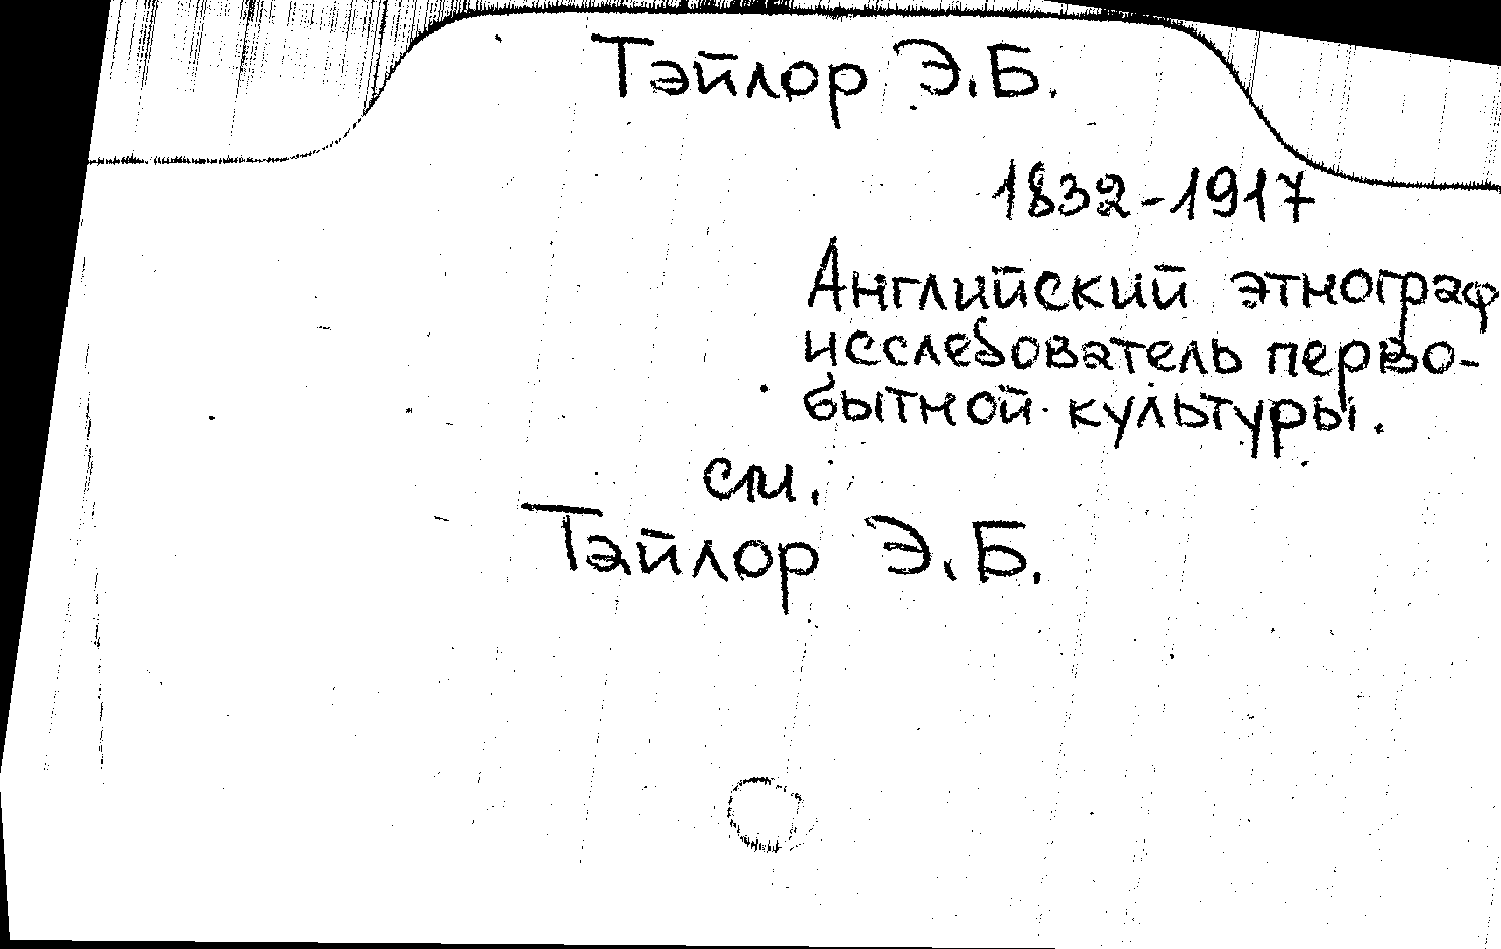 Тэйлор Э.Б.
1832-1917
Английский этнограф
исследователь перво-
бытной культуры.
см.
Тэйлор Э.Б.